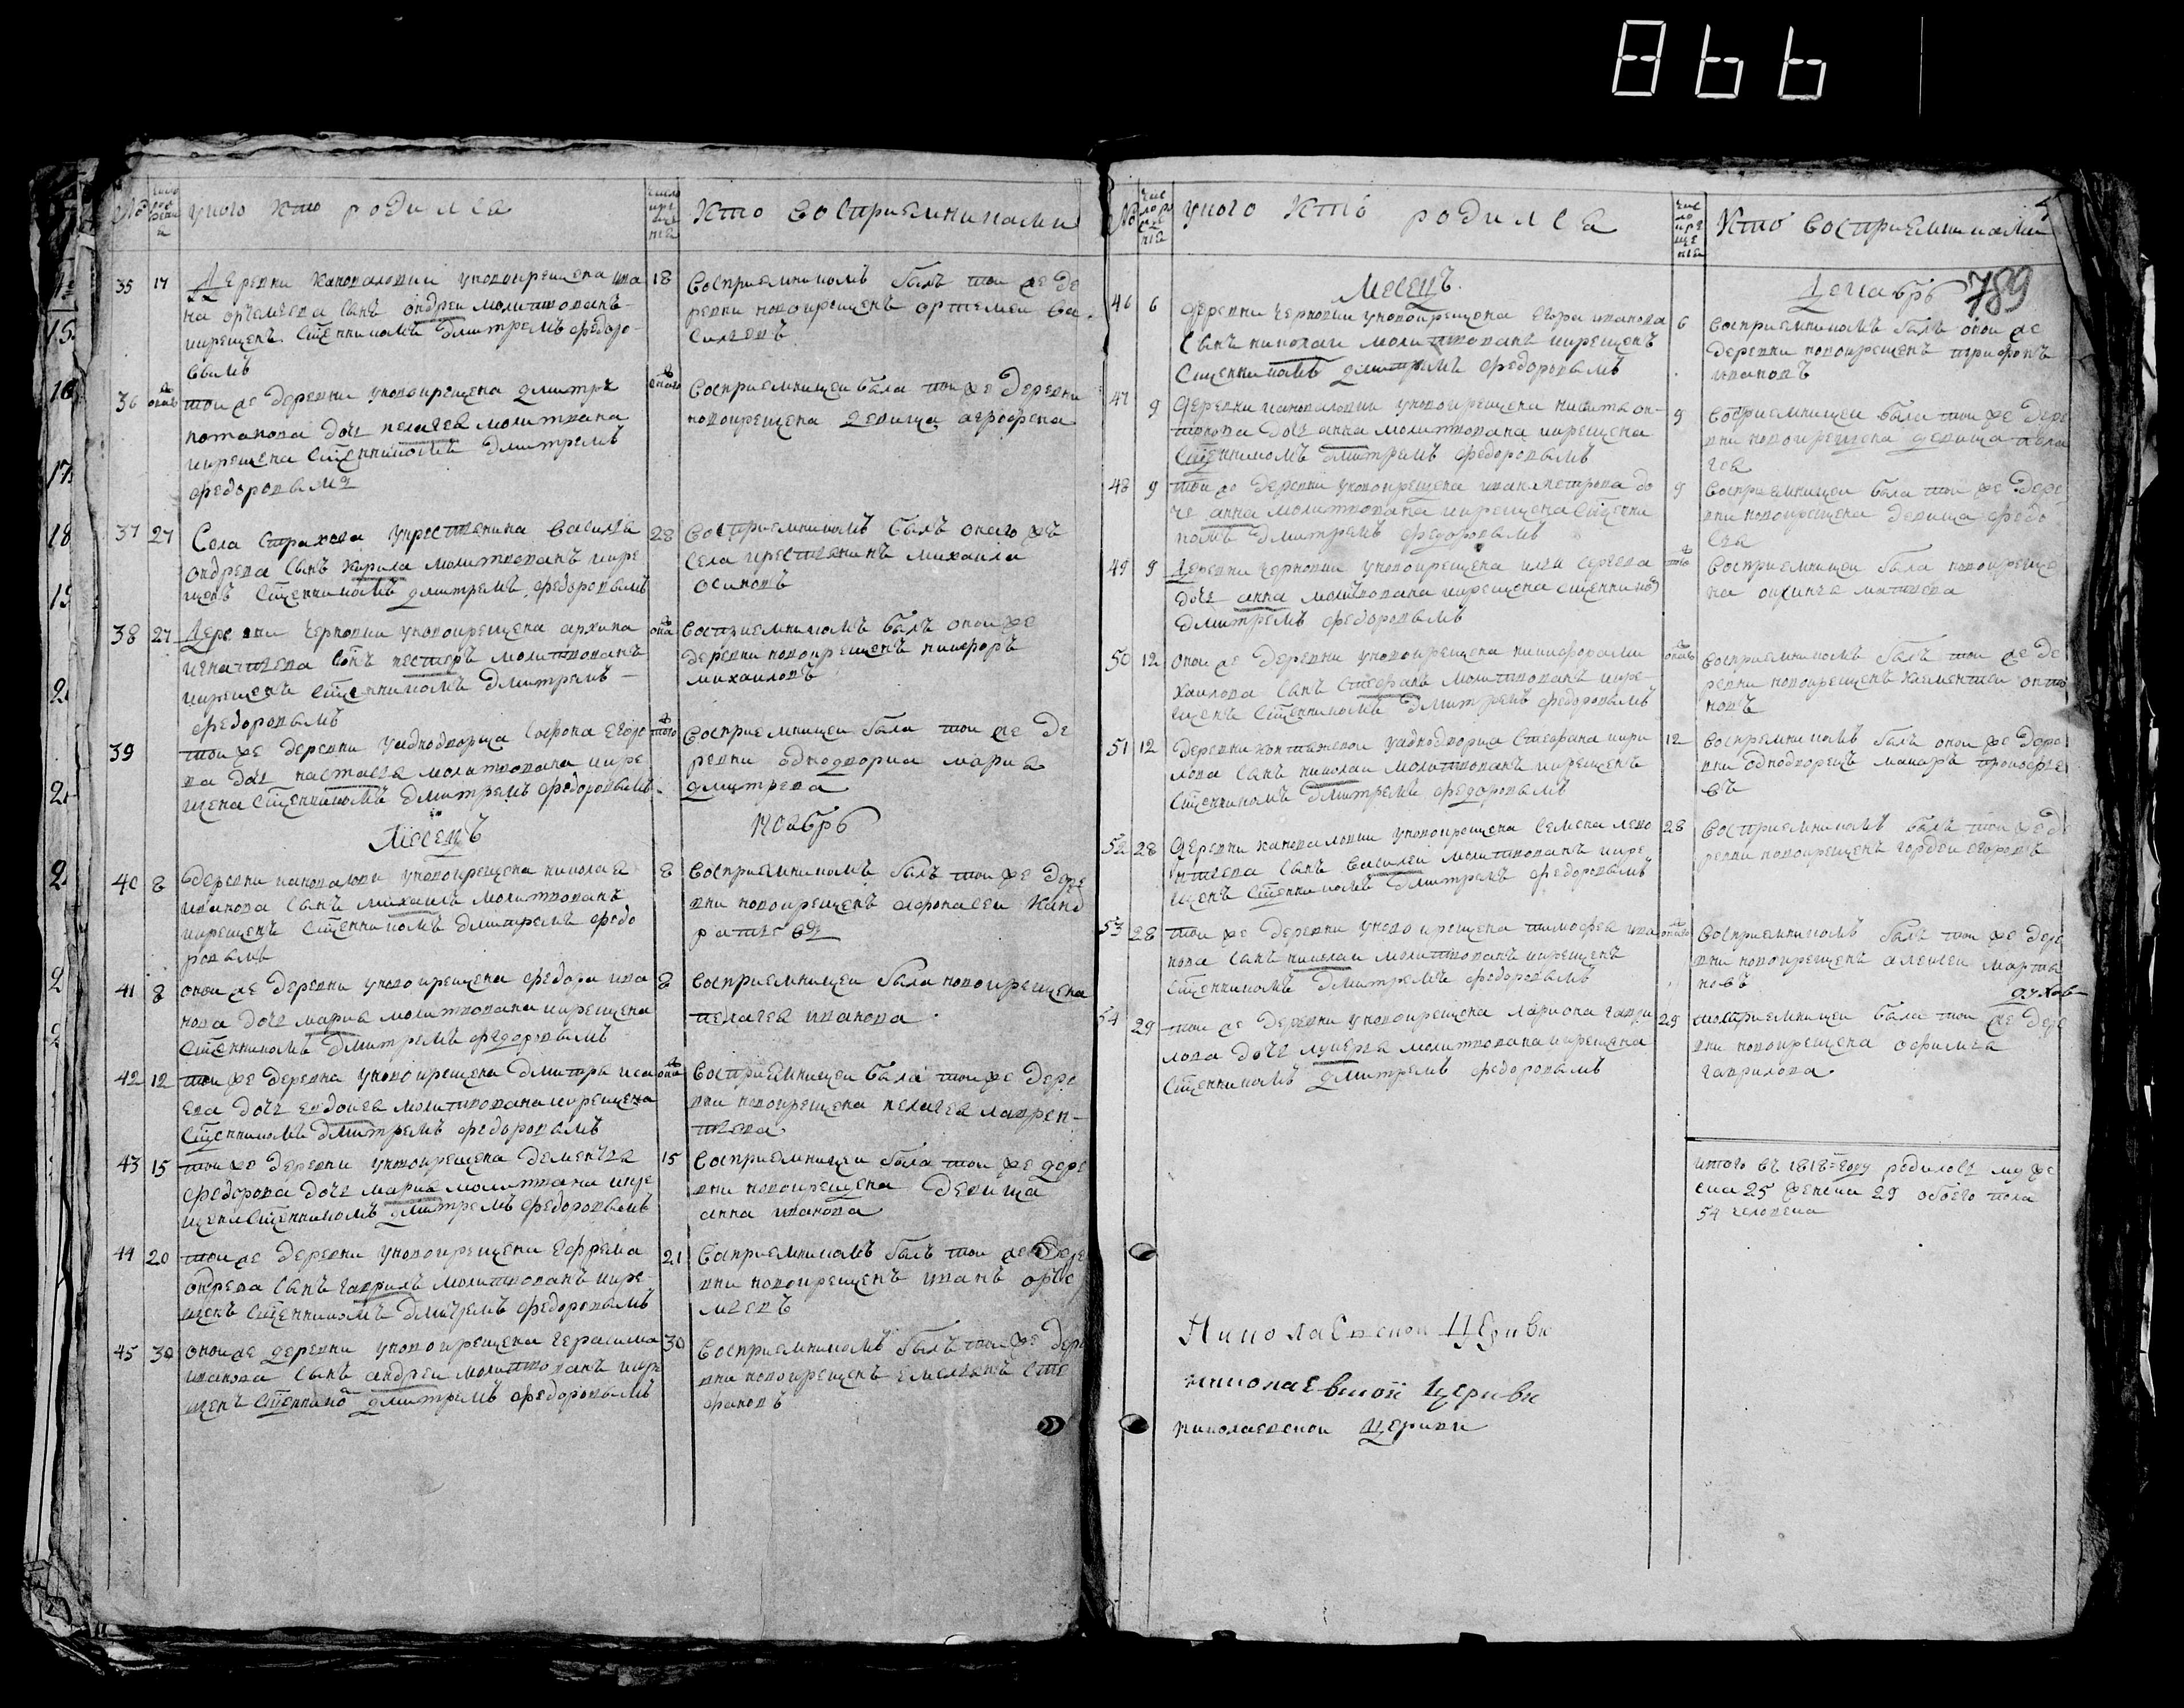 866
№
число рождени
у кого кто родился
число крещения
кто восприемниками
35 17 Деревни Кановаловки у новокрещена ива
на артемьева сынъ андреи молитвованъ
и крещенъ священникомъ дмитремъ федоро
вымъ
18 восприемникомъ былъ тои же де
ревни новокрещенъ артемеи ва
сильевъ
36 тои же деревни у новокрещена дмитрея
потапова дочь пелагея молитвована
и крещена священникомъ дмитремъ
федоровымъ
восприемницеи была тои же деревни
новокрещена девица агрофена
37 27 Села Страхова у крестьянина василья
андрева сынъ карила молитвованъ и кре
щенъ священникомъ дмитремъ федоровымъ
28 восприемникомъ былъ онаго же
села крестьянинъ михаила
осиповъ
38 27 Деревни черновки у новокрещена архипа
игнатьева сынъ нестеръ молитвованъ
и крещенъ священникомъ дмитремъ
федоровымъ
восприемникомъ былъ онои же
деревни новокрещенъ никифоръ
михаиловъ
39 тои же деревни у аднодворца сафона егоро
ва дочь настасья молитвована и кре
щена священникомъ дмитремъ федоровымъ
того восприемницеи была тои же де
ревни однодворка марья
дмитрева
Месецъ ноабрь
40 8 деревни кановаловки у новокрещена николая
иванова сынъ михаилъ молитвованъ
и крещенъ священникомъ дмитремъ федо
ровымъ
8 восприемникомъ былъ тои же дере
вни новокрещенъ афонасеи кинд
ратьевъ
41 8 онои же деревни у новокрещена федора ива
нова дочь марья молитвована и крещена
священникомъ дмитремъ федоровымъ
8 восприемницеи была новокрещена
пелагея иванова
42 12 тои же деревни у новокрещена дмитрея иса
ева дочь евдокея молитвована и крещена
священникомъ дмитремъ федоровымъ
восприемницеи была тои же дере
вни новокрещена пелагея лаврен
тьева
43 15 тои же деревни у новокрещена дементья
федорова дочь марья молитвована и кре
щена священникомъ дмитремъ федоровымъ
15 восприемницеи была тои же дере
вни новокрещена девица
анна иванова
44 20 тои же деревни у новокрещена ефрема
андрева сынъ гаврилъ молитвованъ и кре
щенъ священникомъ дмитремъ федоровымъ
21 восприемникомъ былъ тои же дере
вни новокрещенъ иванъ арте
мьевъ
45 30 онои же деревни у новокрещена герасима
иванова сынъ андреи молитвованъ и кре
щенъ священнико дмитремъ федоровымъ
30 восприемникомъ былъ тои же дере
вни новокрещенъ емельянъ сте
фановъ
№
у кого кто родился
кто восприемниками
Месецъ декабрь
789
46 6 деревни черновки у новокрещена егора иванова
сынъ николаи молитвованъ и крещенъ
священникомъ дмитремъ федоровымъ
6 восприемникомъ былъ онои же
деревни новокрещенъ трифонъ
ивановъ
47 9 деревни кановаловки у новокрещена никиты ан
тонова дочь анна молитвована и крещена
священникомъ дмитремъ федоровымъ
9 восприемницеи была тои же дере
вни новокрещена девица пела
гея
48 9 тои же деревни у новокрещена ивана петрова до
че анна молитвована и крещена священни
комъ дмитремъ федоровымъ
9 восприемницеи была тои же дере
вни новокрещена девица федо
сья
49 9 Деревни черновки у новокрещена ильи сергева
дочь анна молитвована и крещена священнико
дмитремъ федоровымъ
восприемницеи была новокреще
на
50 12 онои же деревни у новокрещена никифора ми
хаилова сынъ стефанъ молитвованъ и кре
щенъ священникомъ дмитремъ федоровымъ
восприемникомъ былъ тои же де
ревни новокрещенъ клементеи анто
новъ
51 12 деревни у аднодворца стефана кири
лова сынъ николаи молитвованъ и крещенъ
священникомъ дмитремъ федоровымъ
12 восприемникомъ былъ онои же дере
вни однодворецъ макаръ прокофье
въ
52 28 деревни кановаловки у новокрещена семена лево
нтьева сынъ василеи молитвованъ и кре
щенъ священникомъ дмитремъ федоровымъ
28 восприемникомъ былъ тои же де
ревни новокрещенъ гордеи егоровъ
53 28 тои же деревни у новокрещена тимофея ива
нова сынъ николаи молитвованъ и крещенъ
священникомъ дмитремъ федоровымъ
восприемникомъ былъ тои же дере
вни новокрещенъ алексеи марты
новъ
духов
54 29 тои же деревни у новокрещена лариона гаври
лова дочь лукерья молитвована и крещена
священникомъ дмитремъ федоровымъ
29 восприемницеи была тои же дере
вни новокрещена офимья
гаврилова
итого въ 1818 году родилось муже
ска 25 женска 29 обоего пола
54 человека
Николаевскои церкви
николаевской церкви
николаевскои церкви